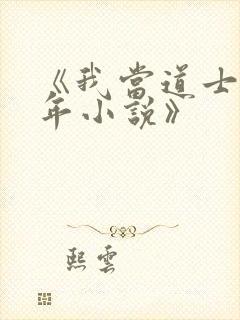 《我當道士
年小說》
熙雲